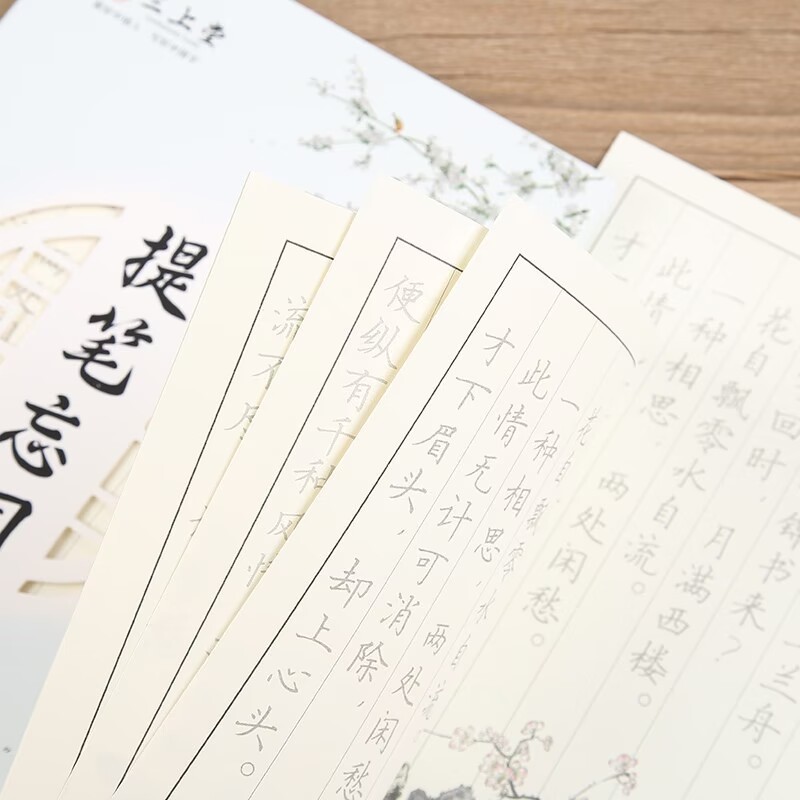 三上堂
提笔忘
流不
便纵有千种风情
花自飘零水自流
一种相思，两处闲愁
此情无计可消除，
才下眉头，却上心头。
兰舟。
锦书来？
回时，月满西楼。
花自飘零水自流。
一种相思，两处闲愁。
此情
才